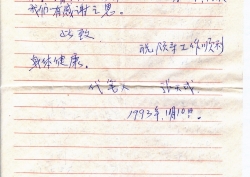 我们有感谢之恩。
此致
祝阮 工作顺利
身体健康。
代笔人
1993年11月10日.